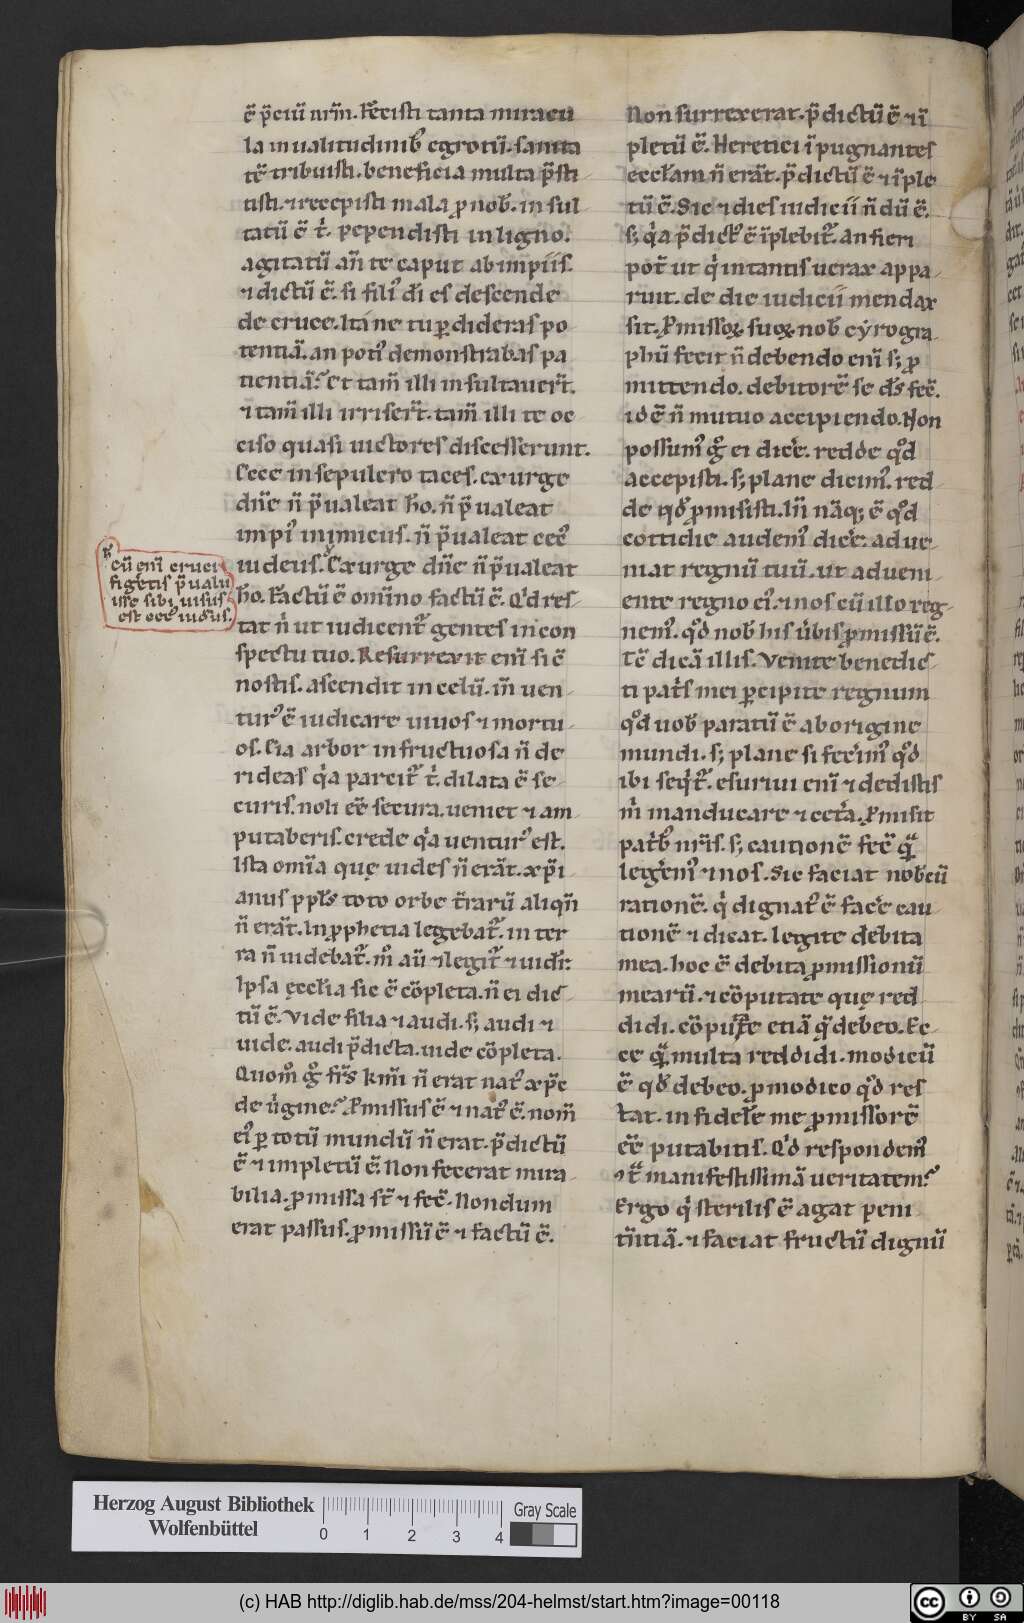 ē p̄ciū nr̄m. Fecisti tanta miracu
la in ualitudinib; egrotū. sanita
tē tribuisti. beneficia multa p̄sti-
tisti. ⁊ recepisti mala ꝓ nob̄. insul
tatū ē t̄. pependisti in ligno.
agitatū añ te caput ab impiis.
⁊ dictū ē. si fili᷒ d̄i es descende
de cruce. Ita ne tu ꝑdideras po
tentiā. an poti᷒ demonstrabas pa
tientiā? Et tam̄ illi insultauer̄t.
⁊ tam̄ illi irriser̄t. tam̄ illi te oc
ciso quasi uictores discesserunt.
Ecce in sepulcro taces. exurge
dn̄e n̄ p̄ualeat h̄o. n̄ p̄ualeat
impi᷒ inimicus. n̄ p̄ualeat cec᷒
iudeus. Exurge dn̄e n̄ p̄ualeat
h̄o. Factū ē omīno factū ē. Qd̓ res-
tat n̓ ut iudicent᷑ gentes in con
spectu tuo. Resurrexit enī si c̄
nostis. ascendit in celū. in̄ uen-
tur᷒ ē iudicare uiuos ⁊ mortu-
os. Eia arbor infructuosa n̄ de
rideas q̓a parcit᷑ t̓. dilata ē se-
curis. noli eē secura. ueniet ⁊ am-
putaberis. crede q̓a uentur᷒ est.
Ista om̄ia quę uides n̄ erāt. xp̄i-
anus ppl̄s toto orbe t̄rarū aliqn̄
n̄ erāt. In ꝓphetia legebat᷑. in ter
ra n̄ uidebat᷑. m̊ aū ⁊ legit᷑ ⁊ uidr̄.
Ipsa ęccl̄ia sic ē cōpleta. n̄ ei dic-
tū ē. Vide filia ⁊ audi. s; audi ⁊
uide. audi p̄dicta. uide cōpleta.
Quom̊ g̊ fr̄s km̄i n̄ erat nat᷒ xp̄c
de u̓gine? Ꝓmissus ē ⁊ nat᷒ ē. nom̄
ei᷒ ꝑ totū mundū n̄ erat. p̄dictū
ē ⁊ impletū ē. Non fecerat mira-
bilia. ꝓmissa st̄ ⁊ fcē. Nondum
erat passus. ꝓmissū ē ⁊ factū ē.
Cū enī cruci
figeretis p̄ualu
isse sibi uisus
est cec᷒ iudeus.
Non surrexerat. p̄dictū ē ⁊ ī
pletū ē. Heretici īpugnantes
eccl̄iam n̄ erāt. p̄dictū ē ⁊ īple
tū ē. Sic ⁊ dies iudicii n̄dū ē.
s; q̓a p̄dict᷒ ē īplebit᷑. an fieri
pot̄ ut q̓ in tantis uerax appa-
ruit. de die iudicii mendax
sit. Ꝓmissoꝝ suoꝝ nob̄ cẏrogra-
phū fecit n̄ debendo enī s; ꝓ
mittendo. debitorē se ds̄ fec̄.
id ē n̄ mutuo accipiendo. Non
possum᷒ g̊ ei dic̄e. redde qd̊
accepisti. s; plane dicim᷒. red-
de qd̊ ꝓmisisti. In̄ nāq; ē qd̊
cottidie audem᷒ dic̄e. adue-
niat regnū tuū. ut adueni-
ente regno ei᷒. ⁊ nos cū illo reg-
nem᷒. qd̊ nob̄ his u̓bis ꝓmissū ē.
Tē dicā illis. Venite benedic-
ti pat̓s mei ꝑcipite regnum
qd̊ uob̄ paratū ē ab origine
mundi. s; plane si fecim᷒ qd̊
ibi seq̓t᷑. esuriui enī ⁊ dedistis
m̓ manducare ⁊ cet̓a. Ꝓmisit
pat̓b; nr̄is. s; cautionē fec̄ qā
legem᷒ ⁊ nos. Sic faciat nob̄cū
rationē. q̓ dignat᷒ ē fac̄e cau-
tionē ⁊ dicat. legite debita
mea. hoc ē debita ꝓmissionū
mearū. ⁊ cōputate quę red
didi. cōputate etiā qd̄ debeo. Ec-
ce qā multa reddidi. modicū
ē qd̊ debeo. ꝓ modico qd̊ res
tat. infidelē me ꝓmissorē
eē putabitis. Qd̓ respondem᷒
⁊t̄ manifestissimā ueritatem?
Ergo q̓ sterilis ē agat peni
tn̄tiā. ⁊ faciat fructū dignū
Herzog August Bibliothek
Wolfenbüttel
0 1 2 3 4
Gray Scale
(c) HAB http://diglib.hab.de/mss/204-helmst/start.htm?image=00118
cc BY SA